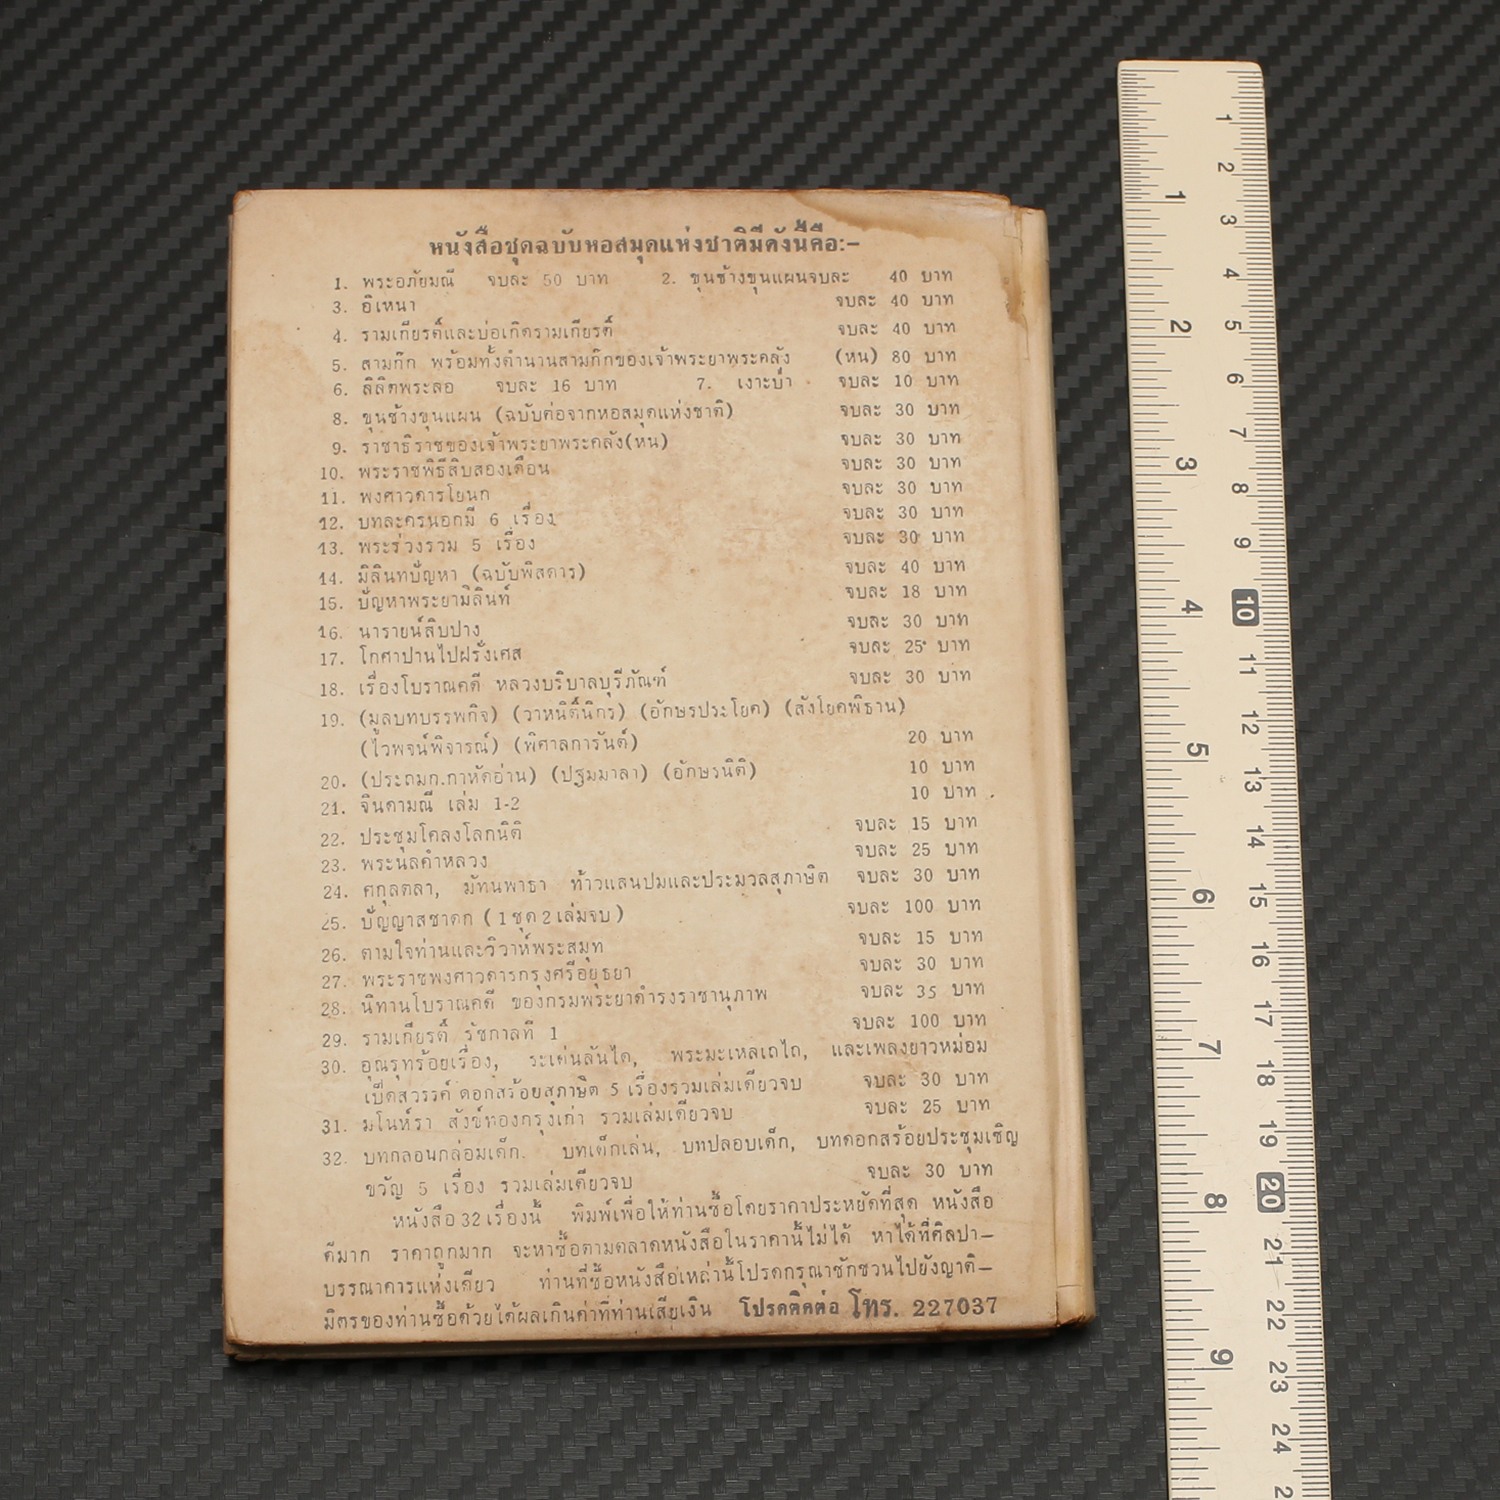 หนังสือชุดฉบับหอสมุดแห่งชาติมีดังนี้คือ:-
1. พระอภัยมณี จบละ 50 บาท 2. ขุนช้างขุนแผนจบละ 40 บาท
3. อิเหนา จบละ 40 บาท
4. รามเกียรติ์และบ่อเกิดรามเกียรติ์ จบละ 40 บาท
5. สามก๊ก พร้อมทั้งตำนานสามก๊กของเจ้าพระยาพระคลัง (หน) 80 บาท
6. ลิลิตพระลอ จบละ 16 บาท 7. เงาะป่า จบละ 10 บาท
8. ขุนช้างขุนแผน (ฉบับต่อจากหอสมุดแห่งชาติ) จบละ 30 บาท
9. ราชาธิราชของเจ้าพระยาพระคลัง(หน) จบละ 30 บาท
10. พระราชพิธีสิบสองเดือน จบละ 30 บาท
11. พงศาวดารโยนก จบละ 30 บาท
12. บทละครนอกมี 6 เรื่อง จบละ 30 บาท
13. พระร่วงรวม 5 เรื่อง จบละ 30 บาท
14. มิลินทปัญหา (ฉบับพิสดาร) จบละ 40 บาท
15. ปัญหาพระยามิลินท์ จบละ 18 บาท
16. นารายน์สิบปาง จบละ 30 บาท
17. โกศาปานไปฝรั่งเศส จบละ 25 บาท
18. เรื่องโบราณคดี หลวงบริบาลบุรีภัณฑ์ จบละ 30 บาท
19. (มูลบทบรรพกิจ) (วาหนิติ์นิกร) (อักษรประโยค) (สังโยคพิธาน)
(ไวพจน์พิจารณ์) (พิศาลการันต์) 20 บาท
20. (ประถมก.กาหัดอ่าน) (ปฐมมาลา) (อักษรนิติ) 10 บาท
21. จินดามณี เล่ม 1-2 10 บาท
22. ประชุมโคลงโลกนิติ จบละ 15 บาท
23. พระนลคำหลวง จบละ 25 บาท
24. ศกุลตลา, มัทนพาธา ท้าวแสนปมและประมวลสุภาษิต จบละ 30 บาท
25. ปัญญาสชาดก (1ชุด2เล่มจบ) จบละ 100 บาท
26. ตามใจท่านและวิวาห์พระสมุท จบละ 15 บาท
27. พระราชพงศาวดารกรุงศรีอยุธยา จบละ 30 บาท
28. นิทานโบราณคดี ของกรมพระยาดำรงราชานุภาพ จบละ 35 บาท
29. รามเกียรติ์ รัชกาลที่ 1 จบละ 100 บาท
30. อุณรุทร้อยเรื่อง, ระเด่นลันได, พระมะเหลเถไถ, และเพลงยาวหม่อม
เป็ดสวรรค์ ดอกสร้อยสุภาษิต 5 เรื่องรวมเล่มเดียวจบ จบละ 30 บาท
31. มโนห์รา สังข์ทองกรุงเก่า รวมเล่มเดียวจบ จบละ 25 บาท
32. บทกลอนกล่อมเด็ก. บทเด็กเล่น, บทปลอบเด็ก, บทดอกสร้อยประชุมเชิญ
ขวัญ 5 เรื่อง รวมเล่มเดียวจบ จบละ 30 บาท
หนังสือ32เรื่องนี้ พิมพ์เพื่อให้ท่านซื้อโดยราคาประหยัดที่สุด หนังสือ
ดีมาก ราคาถูกมาก จะหาซื้อตามตลาดหนังสือในราคานี้ไม่ได้ หาได้ที่ศิลปา-
บรรณาคารแห่งเดียว ท่านที่ซื้อหนังสือเหล่านี้โปรดกรุณาชักชวนไปยังญาติ-
มิตรของท่านซื้อด้วยได้ผลเกินค่าที่ท่านเสียเงิน โปรดติดต่อ โทร. 227037
1 2 3 4 5 6 7 8 9 10 11 12 13 14 15 16 17 18 19 20 21 22 23 24
1 2 3 4 5 6 7 8 9